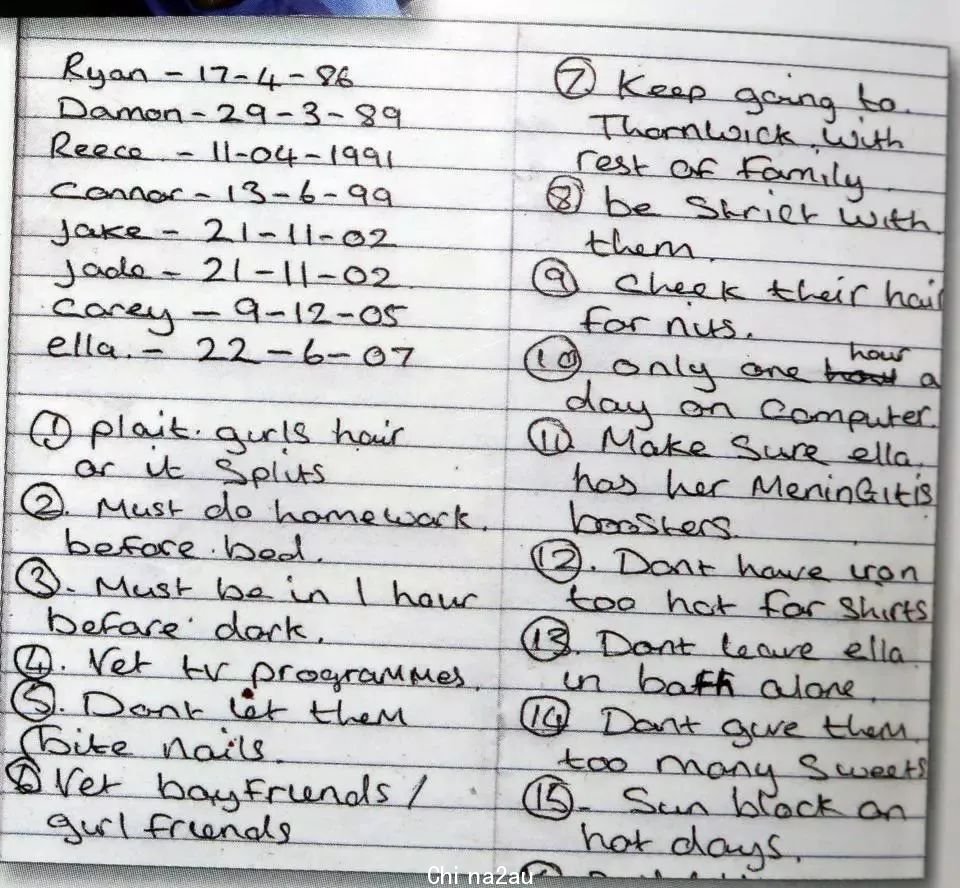 Ryan - 17-4-86
Damon - 29-3-89
Reece - 11-04-1991
Connor - 13-6-99
Jake - 21-11-02
Jade - 21-11-02
Corey - 9-12-05
ella. - 22-6-07
① plait girls hair
or it splits
②. Must do homework
before bed.
③. Must be in 1 hour
before dark.
④. Vet tv programmes.
⑤. Dont let them
bite nails.
⑥ Vet boyfriends /
girlfriends
⑦ Keep going to
Thornwick with
rest of family
⑧ be Strict with
them.
⑨ Check their hair
for nits.
⑩ only one hour a
day on computer.
⑪ Make Sure ella
has her MeninGitis
boosters.
⑫. Dont have iron
too hot for shirts
⑬. Dont leave ella
in bath alone
⑭ Dont give them
too many Sweets
⑮- Sun block on
hot days.
Chi na2au